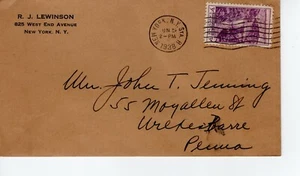 R. J. LEWINSON
825 WEST END AVENUE
NEW YORK, N. Y.
NEW YORK, N.Y.
1938
Mr. John T. Jenning
55 Moyallen St
Wilkesbarre
Penna